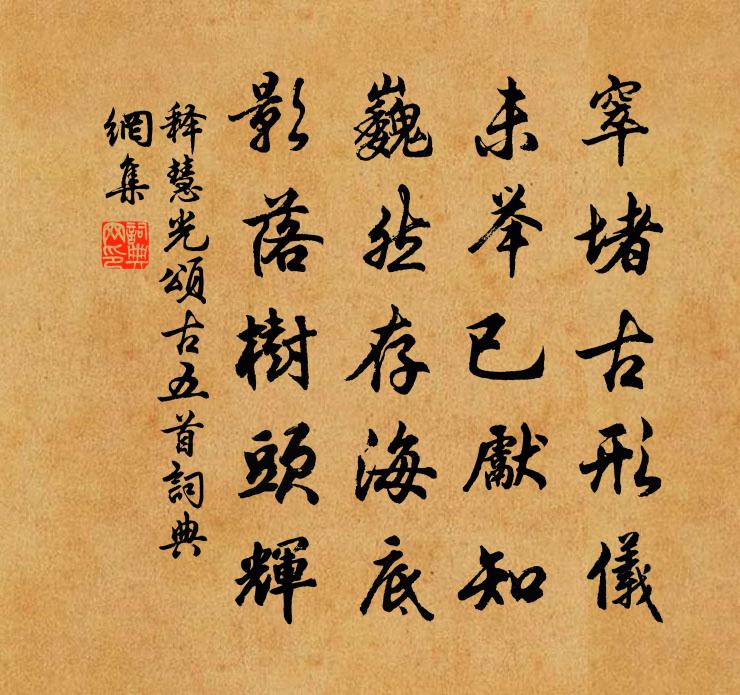 窣堵古形儀
未举已獻知
巍然存海底
影落樹頭輝
释慧光頌古五首詞典
網集
詞典
网印